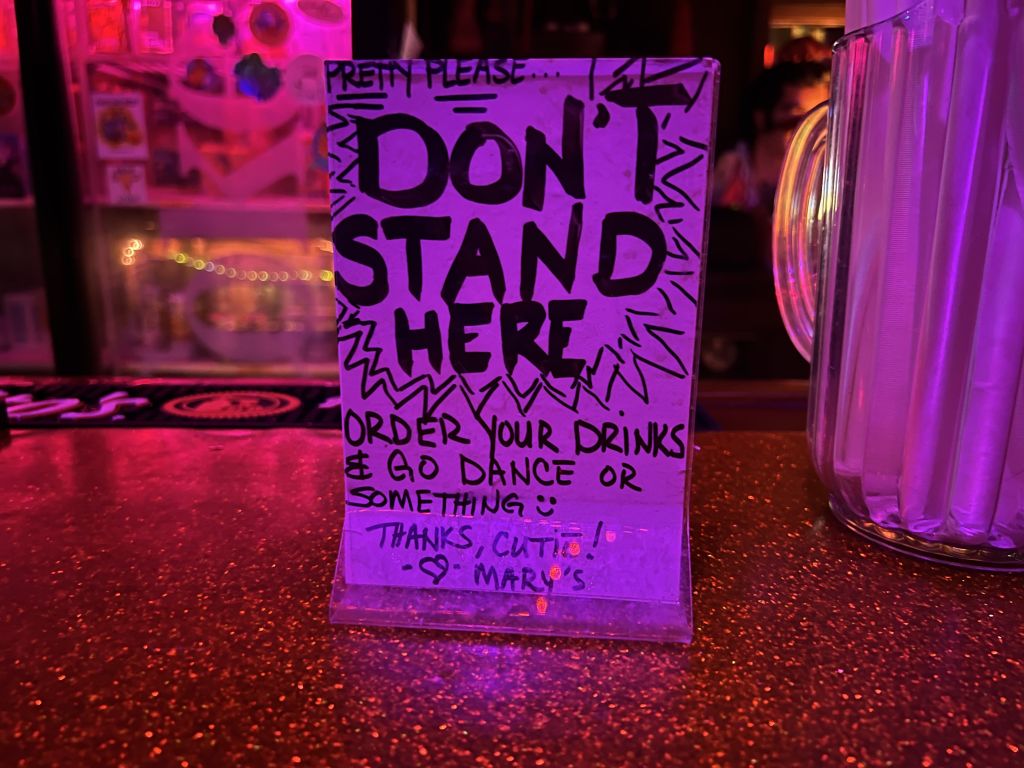 PRETTY PLEASE...
DON'T
STAND
HERE
ORDER YOUR DRINKS
& GO DANCE OR
SOMETHING :)
THANKS, CUTIE!
-♡- MARY'S